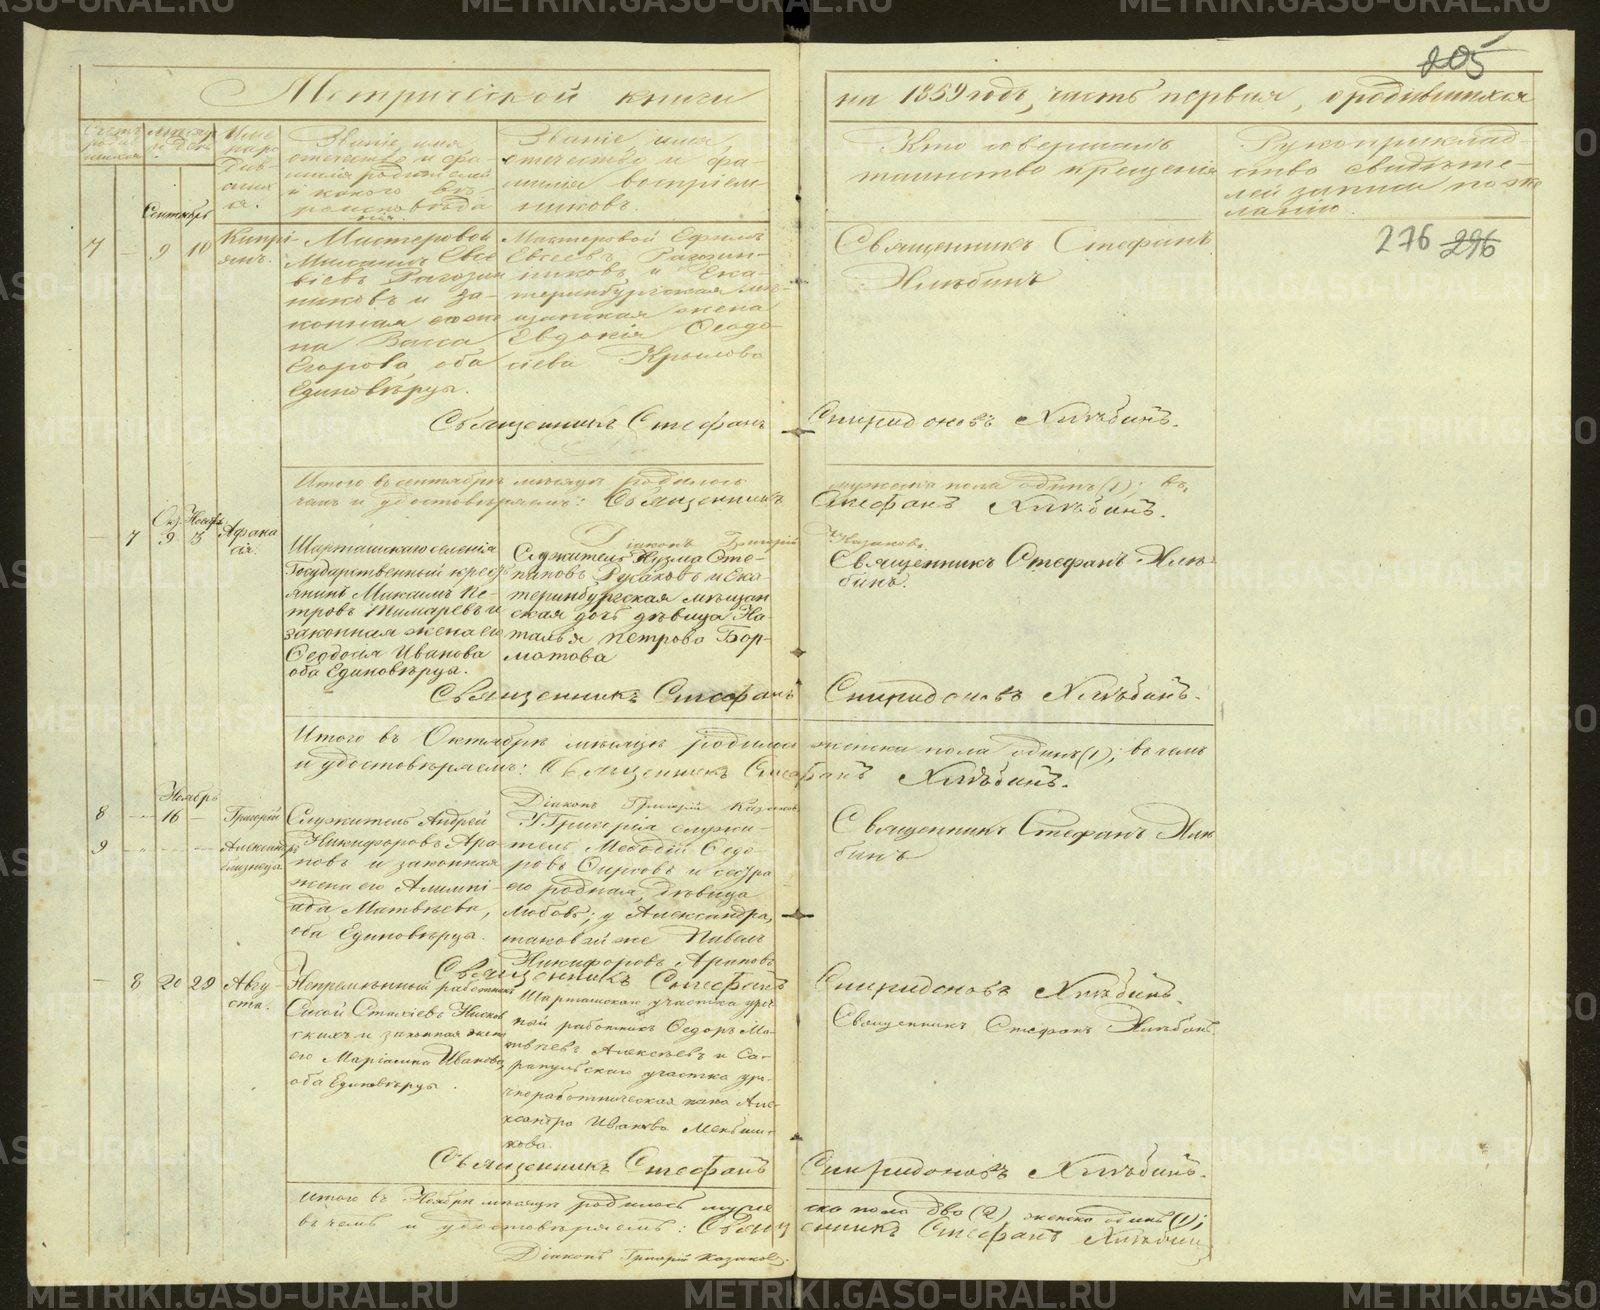 205
Метрической книги
на 1859 годъ, часть первая, о родившихся
Званіе, имя,
отечество и фа-
милія родителей
и какого вѣ-
роисповѣда
нія.
Званіе, имя,
отечество и фа-
милія воспріем-
никовъ.
Кто совершалъ
таинство крещенія
Рукоприклад-
ство свидѣте-
лей записи по же
ланію.
Сентябрь
7 — 9 10
Кипрі
янъ.
Мастеровой
ніковъ и за-
конная его же
на Васса
Егорова, оба
Единовѣрцы.
Мастеровой Ефимъ
Евсеевъ Рагозин-
никовъ и Ека-
теринбургская мѣ-
щанская жена
Евдокія Ѳеодо-
сіева Крылова
Священникъ Стефанъ
Хлѣбинъ
276 296
Священникъ Стефанъ Спиридоновъ Хлѣбинъ.
Итого въ сентябрѣ мѣсяцѣ родилось мужеска пола одинъ (1); въ
чемъ и удостовѣряемъ: Священникъ Стефанъ Хлѣбинъ.
Діаконъ Григорій Казаковъ.
— 7 9
Шарташскаго селенія
Государственный крестъ
янинъ Максимъ Пе-
тровъ и
законная жена его
Ѳеодосія Иванова
оба Единовѣрцы.
Служитель Кузма Сте-
пановъ Русаковъ и Ека-
теринбургская мѣщан
ская дочь дѣвица На-
талья Петрова Бор-
матова
Священникъ Стефанъ Хлѣ-
бинъ.
Священникъ Стефанъ Спиридоновъ Хлѣбинъ.
Итого въ Октябрѣ мѣсяцѣ родилось женска пола одинъ (1); въ чемъ
и удостовѣряемъ: Священникъ Стефанъ Хлѣбинъ.
Діаконъ Григорій Казаковъ
Ноябрь
8 — 16 —
Григорій
9
Александръ
близнецы
Служитель Андрей
Никифоровъ Ара-
повъ и законная
жена его Алимпі-
ада Матвѣева,
оба Единовѣрцы.
У Григорія служи-
тель Меѳодій Ѳедо-
ровъ и сестра
его родная, дѣвица
Любовь; у Александра,
таковой же Павелъ
Никифоровъ Араповъ
Священникъ Стефанъ Хлѣ
бинъ
Священникъ Стефанъ Спиридоновъ Хлѣбинъ.
— 8 20 29
Авгу-
ста.
Непремѣнный работникъ
и законная жена
его Маріамна Иванова,
оба Единовѣрцы.
Шарташскаго участка уроч
ный работникъ Ѳедоръ Ма-
твѣевъ Алексѣевъ и Са-
рапульскаго участка уро-
чнеработническая жена Але-
ксандра Иванова Меньши-
кова.
Священникъ Стефанъ Хлѣбинъ
Священникъ Стефанъ Спиридоновъ Хлѣбинъ.
Итого въ Ноябрѣ мѣсяцѣ родилось муже ска пола два (2), женска одинъ (1);
въ чемъ и удостовѣряемъ: Священникъ Стефанъ Хлѣбинъ
Діаконъ Григорій Казаковъ.
METRIKI.GASO-URAL.RU